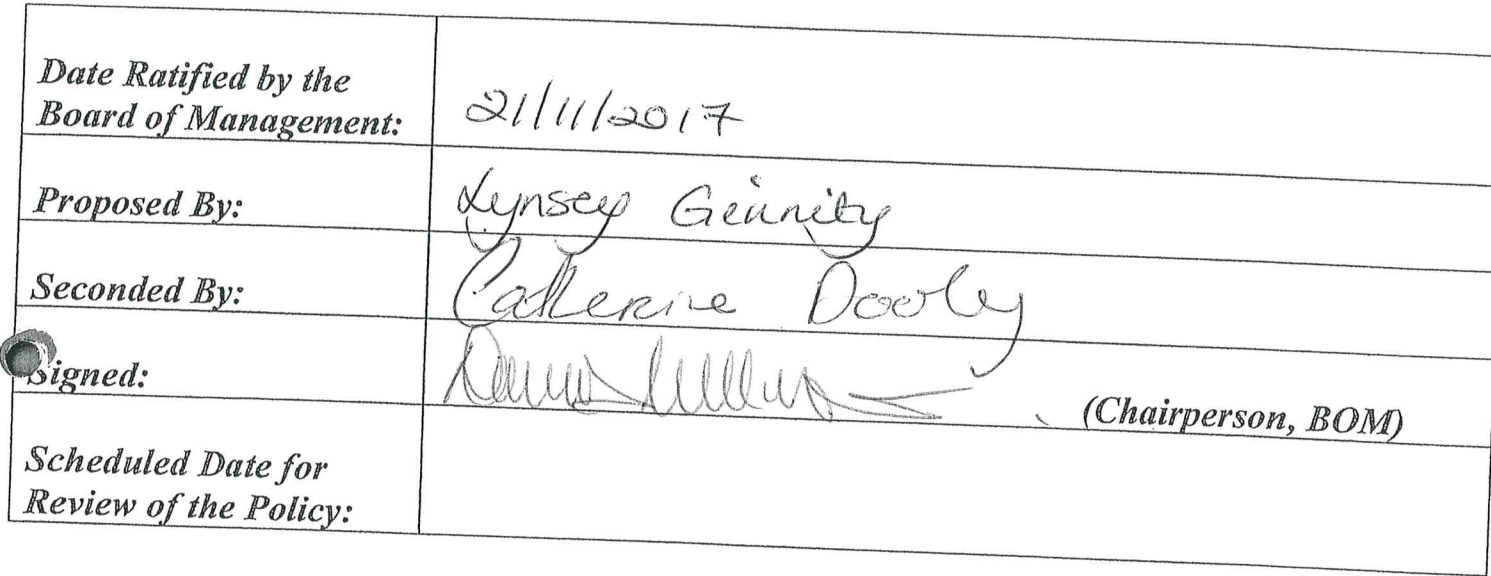 Date Ratified by the
Board of Management: 21/11/2017
Proposed By: Lynsey Geinnity
Seconded By: Catherine Dooly
Signed: (Chairperson, BOM)
Scheduled Date for
Review of the Policy: